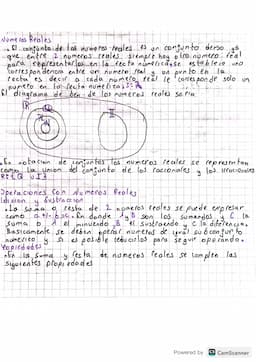 Numeros Reales
. El conjunto de los numeros reales es un conjunto denso ya
que entre 2 numeros reales siempre hay otro numero real
para representarlos en la recta numerica se establece una
correspondencia entre un numero real y un punto en la
recta es decir a cada numero real le corresponde solo un
punto en la recta numerica
El diagrama de de los numeros reales seria
R
Q
Z
N
II
. En notacion de conjuntos los numeros reales se representan
como la union del conjunto de los racionales y los irracionales
Operaciones con Numeros Reales
Adicion y Sustraccion
. La suma o resta de 2 numeros reales se puede expresar
como a+b=c. En donde A y B son los sumandos y C la
suma o A el minuendo B el sustraendo y C la diferencia.
Basicamente se deben operar numeros de igual subconjunto
numerico y si es posible reducirlos para seguir operando.
Propiedades
. En la suma y resta de numeros reales se cumplen las
siguientes propiedades
Powered by CS CamScanner